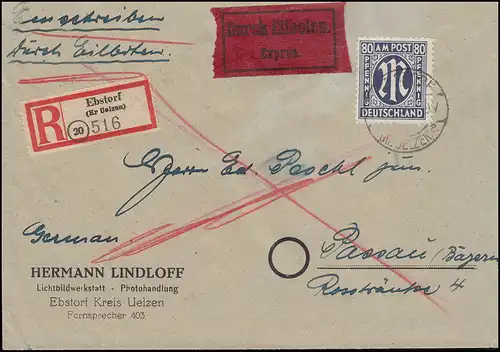 Einschreiben
Durch Eilboten.
Durch Eilboten.
Exprès.
80 AM POST 80
PFENNIG M PFENNIG
DEUTSCHLAND
(Kr. UELZEN)
R
Ebstorf
(Kr Uelzen)
(20) 516
Herrn Ed. Paschl jun.
German.
Passau/Bayern
HERMANN LINDLOFF
Lichtbildwerkstatt - Photohandlung
Ebstorf Kreis Uelzen
Fernsprecher 403
Rosstränke 4